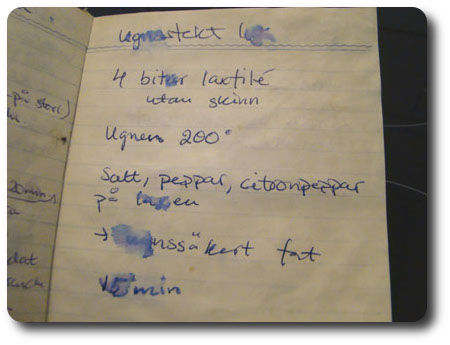 Ugnsstekt
4 bitar laxfilé
utan skinn
Ugnen 200°
Salt, peppar, citronpeppar
på laxen
→ ugnssäkert fat
15 min
på
20 min
dat